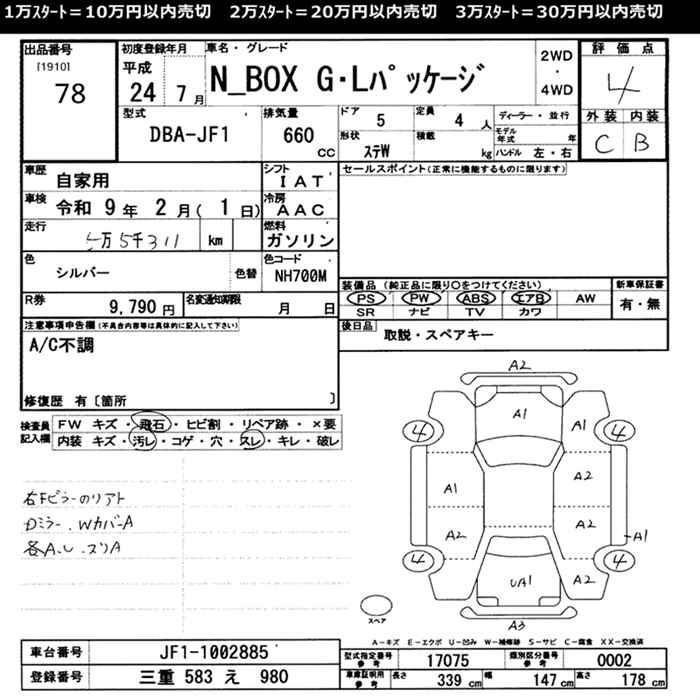 1万ｽﾀｰﾄ＝10万円以内売切　2万ｽﾀｰﾄ＝20万円以内売切　3万ｽﾀｰﾄ＝30万円以内売切
出品番号
[1910]
78
初度登録年月
平成
24 7月
車名・グレード
N_BOX G・Lﾊﾟｯｹｰｼﾞ
2WD
・
4WD
評価点
4
外装 内装
C B
型式
DBA-JF1
排気量
660
CC
ドア 5
定員 4 人
形状 ｽﾃW
積載 kg
ディーラー・並行
モデル年式 年
ハンドル 左・右
車歴 自家用
シフト IAT
車検 令和 9年 2月( 1日)
冷房 AAC
走行 5万5千311 km
燃料 ガソリン
色 シルバー 色替
色コード NH700M
R券 9,790円
名変通知期限 月 日
セールスポイント(正常に機能するものに限ります)
装備品(純正品に限り○をつけてください)
PS PW ABS エアB AW
SR ナビ TV カワ
新車保証書
有・無
後日品 取説・スペアキー
注意事項申告欄(不具合内容等は具体的に記入して下さい)
A/C不調
修復歴 有〔箇所 〕
検査員記入欄
FW キズ・飛石・ヒビ割・リペア跡・×要
内装 キズ・汚レ・コゲ・穴・スレ・キレ・破レ
右Fピラーのリアト
Dミラー.WカバーA
各A.U.スリA
A2
A1
4 4
A1 A2
A2 A2
A1
4 4
UA1 A2
A3
スペア
A-キズ E-エクボ U-凹み W-補修跡 S-サビ C-腐食 XX-交換済
車台番号 JF1-1002885
登録番号 三重 583 え 980
型式指定番号参考 17075
類別区分番号参考 0002
車庫証明用参考 長さ 339 cm 幅 147 cm 高さ 178 cm